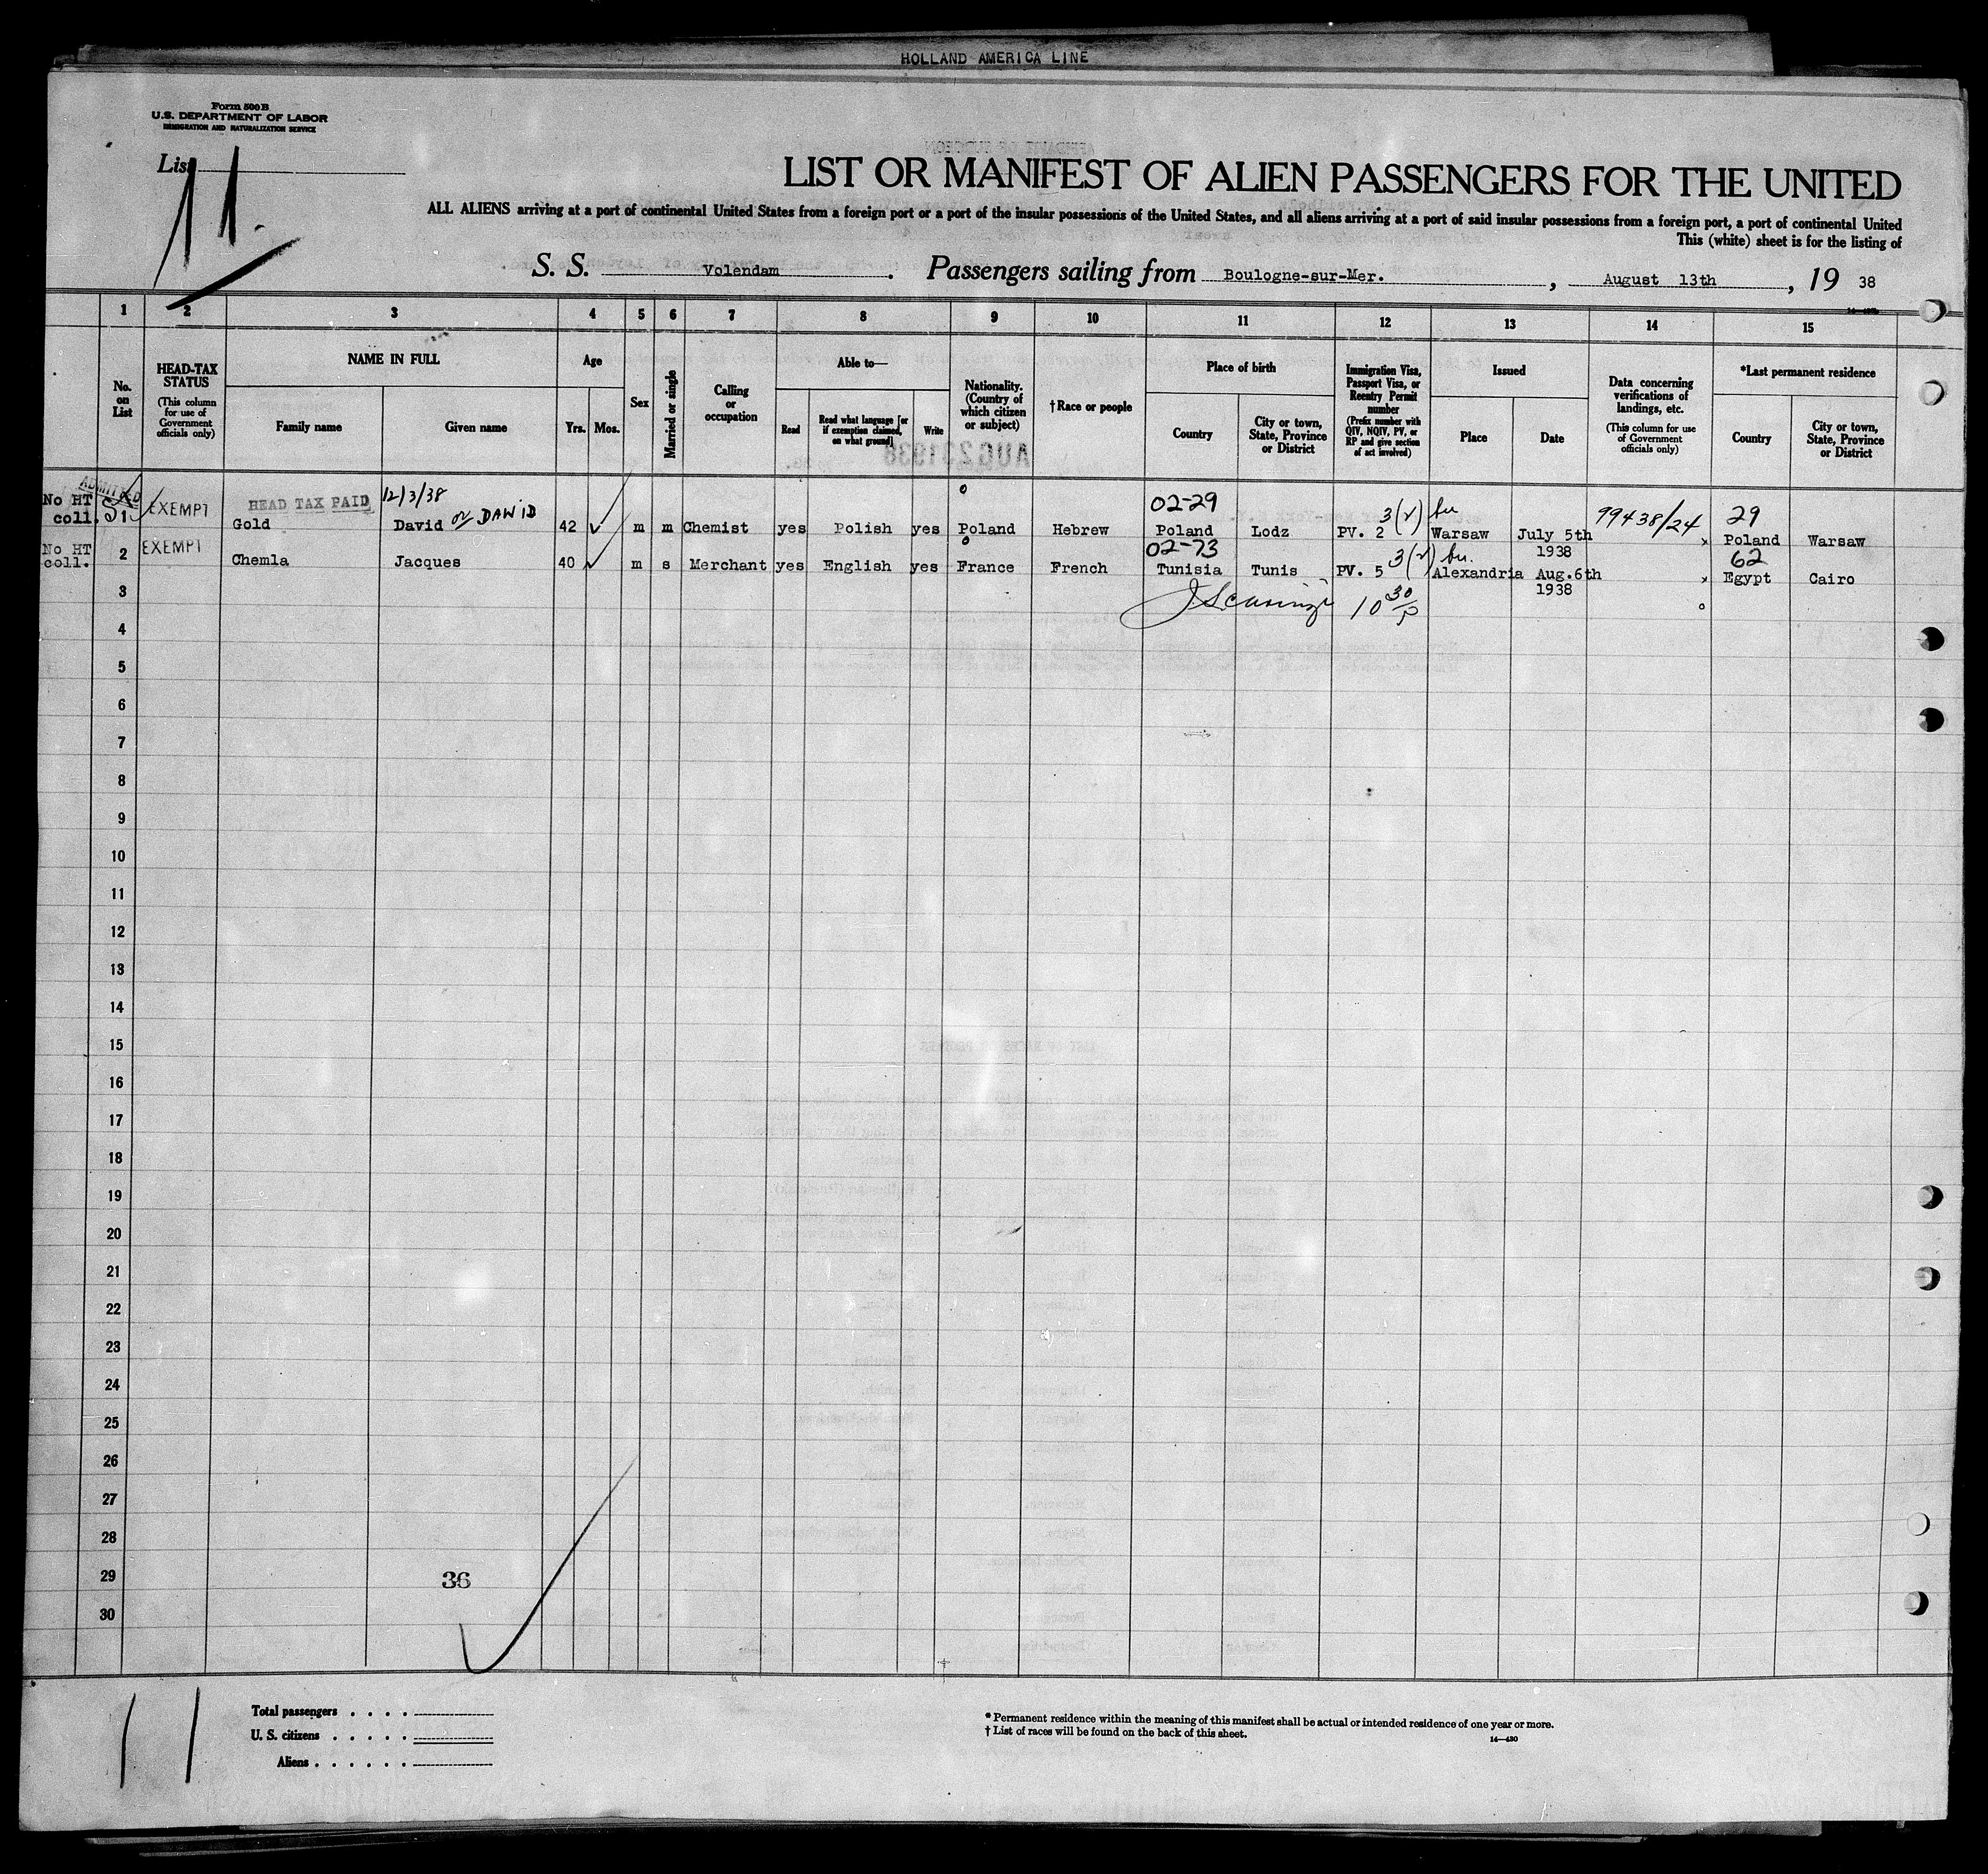 HOLLAND AMERICA LINE
Form 500 B
U.S. DEPARTMENT OF LABOR
IMMIGRATION AND NATURALIZATION SERVICE
List
11.
LIST OR MANIFEST OF ALIEN PASSENGERS FOR THE UNITED
ALL ALIENS arriving at a port of continental United States from a foreign port or a port of the insular possessions of the United States, and all aliens arriving at a port of said insular possessions from a foreign port, a port of continental United
This (white) sheet is for the listing of
S. S. Volendam. Passengers sailing from Boulogne-sur-Mer., August 13th, 19 38
1 2 3 4 5 6 7 8 9 10 11 12 13 14 15
No. on List
HEAD-TAX STATUS (This column for use of Government officials only)
NAME IN FULL
Family name
Given name
Age
Yrs. Mos.
Sex
Married or single
Calling or occupation
Able to—
Read
Read what language [or if exemption claimed, on what ground]
Write
Nationality. (Country of which citizen or subject)
†Race or people
Place of birth
Country
City or town, State, Province or District
Immigration Visa, Passport Visa, or Reentry Permit number (Prefix number with QIV, NQIV, PV, or RP and give section of act involved)
Issued
Place
Date
Data concerning verifications of landings, etc. (This column for use of Government officials only)
*Last permanent residence
Country
City or town, State, Province or District
AUG 23 1938
ADMITTED
No HT coll. 1 EXEMPT HEAD TAX PAID 12/3/38
Gold David or DAWID 42 m m Chemist yes Polish yes Poland Hebrew 02-29 Poland Lodz PV. 2 3(2) Warsaw July 5th 1938 99438/24 29 Poland Warsaw
No HT coll. 2 EXEMPT
Chemla Jacques 40 m s Merchant yes English yes France French 02-73 Tunisia Tunis PV. 5 3(2) Alexandria Aug.6th 1938 62 Egypt Cairo
3
10 30
4
5
6
7
8
9
10
11
12
13
14
15
16
17
18
19
20
21
22
23
24
25
26
27
28
29
36
30
11
Total passengers
U. S. citizens
Aliens
* Permanent residence within the meaning of this manifest shall be actual or intended residence of one year or more.
† List of races will be found on the back of this sheet.
14—430